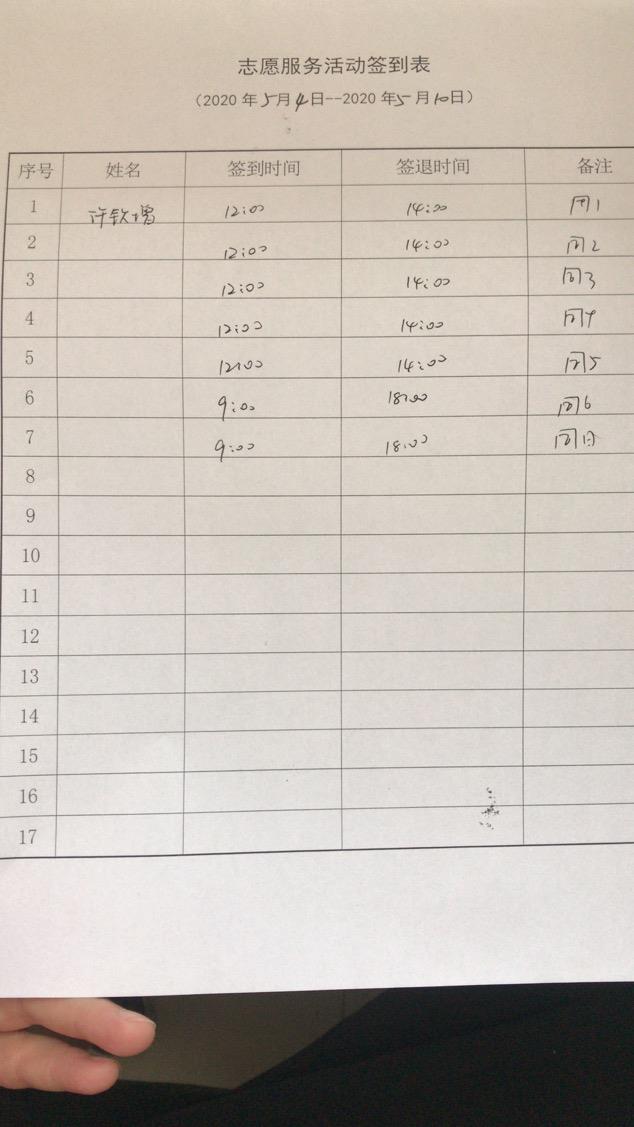 志愿服务活动签到表
（2020 年 5 月 4 日--2020 年 5 月 10 日）
序号 姓名 签到时间 签退时间 备注
1 许钦增 12:00 14:00 周1
2 12:00 14:00 周2
3 12:00 14:00 周3
4 12:00 14:00 周4
5 12:00 14:00 周5
6 9:00 18:00 周6
7 9:00 18:00 周日
8
9
10
11
12
13
14
15
16
17